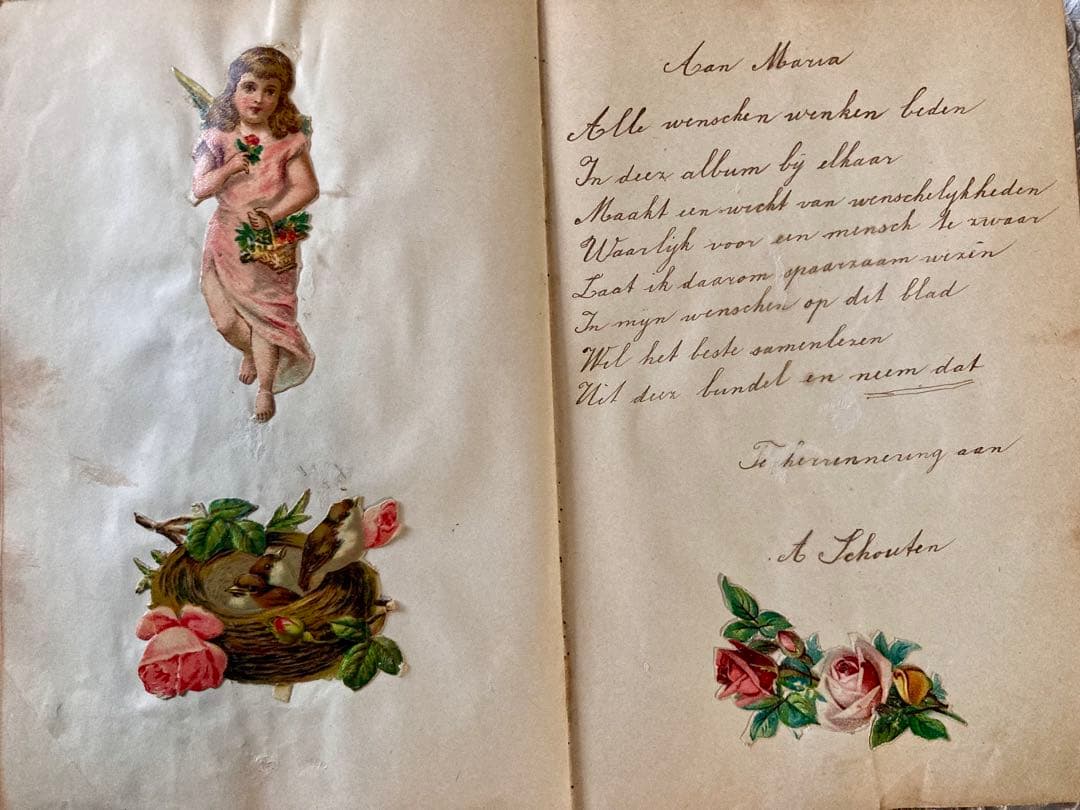 Aan Maria
Alle wenschen wenken beden
In deez album bij elkaar
Maakt een wicht van wenschelijkheden
Waarlijk voor een mensch te zwaar
Laat ik daarom spaarzaam wezen
In mijn wenschen op dit blad
Wil het beste samenlezen
Uit deez bundel en neem dat
Te herrennering aan
A Schouten